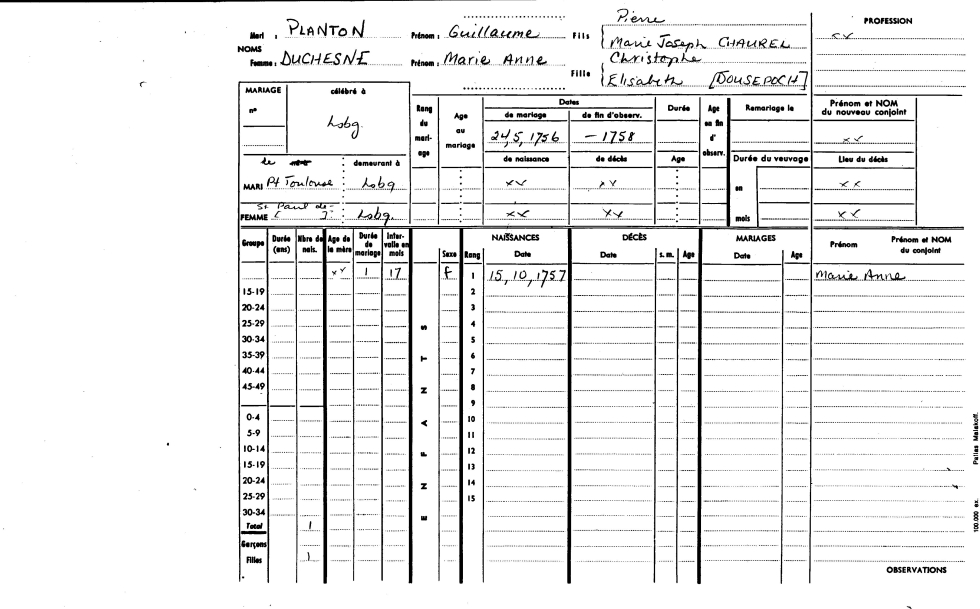 Mari : PLANTON Prénom : Guillaume Fils Pierre PROFESSION
NOMS Marie Joseph CHAUREL xx
Femme : DUCHESNE Prénom : Marie Anne Christophe
Fille Elisabeth [DOUSEPOCH]
MARIAGE célébré à Rang du mariage Age au mariage Dates Durée Age en fin d'observ. Remariage le Prénom et NOM du nouveau conjoint
n° Lsbg. de mariage de fin d'observ. xx
24,5,1756 - 1758
de demeurant à de naissance de décès Age Durée du veuvage Lieu du décès
MARI Pt Toulouse : Lsbg xx xx en xx
FEMME St Paul de [ ] : Lsbg. xx xx mois xx
Groupe Durée (ans) Nbre de nais. Age de la mère Durée de mariage Intervalle en mois Sexe Rang NAISSANCES DÉCÈS MARIAGES Prénom Prénom et NOM du conjoint
Date Date s. m. Age Date Age
xx 1 17 f 1 15,10,1757 Marie Anne
15-19 2
20-24 3
25-29 S 4
30-34 5
35-39 T 6
40-44 7
45-49 N 8
9
0-4 A 10
5-9 11
10-14 F 12
15-19 13
20-24 N 14
25-29 15
30-34 E
Total 1
Garçons
Filles 1
OBSERVATIONS
100.000 ex. Petites Malakoff.